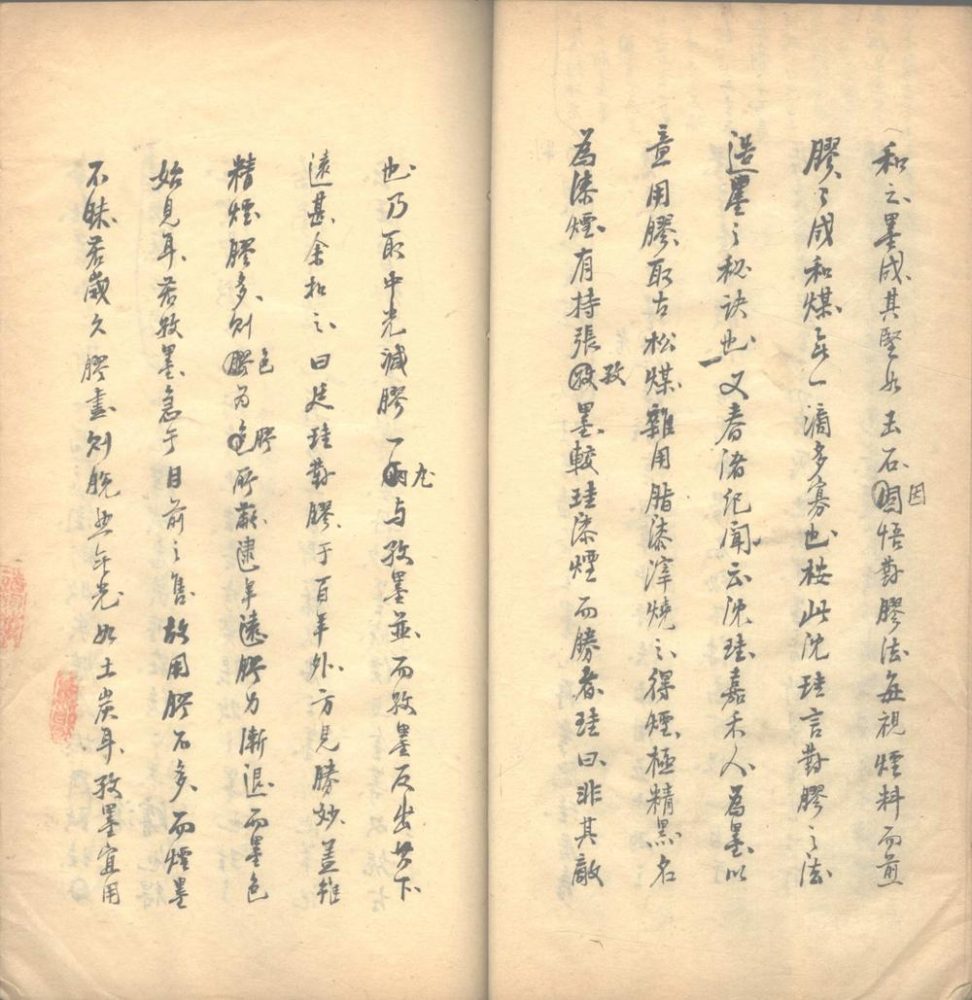 和之墨成其堅如玉石因悟對膠法每視煙料而煎
膠之成和煤無一滴多寡也桉此沈珪言對膠之法
造墨之秘訣也又春渚纪聞云沈珪嘉禾人為墨以
意用膠取古松煤雜用脂漆滓燒之得煙極精黑名
為漆煙有持張孜墨較珪漆煙而勝者珪曰非其敵
也乃取中光減膠一丸与孜墨並而孜墨反出其下
遠甚余扣之曰是珪對膠于百年外方見勝妙蓋雖
精煙膠多則色为膠所蔽逮年遠膠力漸退而墨色
始見耳若孜墨急于目前之售故用膠不多而煙墨
不昧若歲久膠盡则脱然無光如土炭耳孜墨宜用